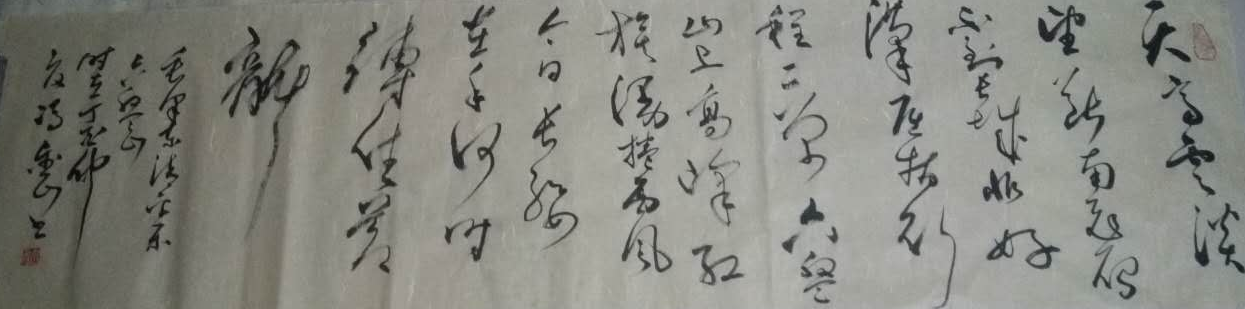 天高雲淡
望断南飛雁
不到长城非好
漢屈指行
程二万六盘
山上高峰红
旗漫捲西风
今日长缨
在手何时
缚住苍
龍
毛泽东清平乐
六盘山
时在丁酉仲
夏冯山书